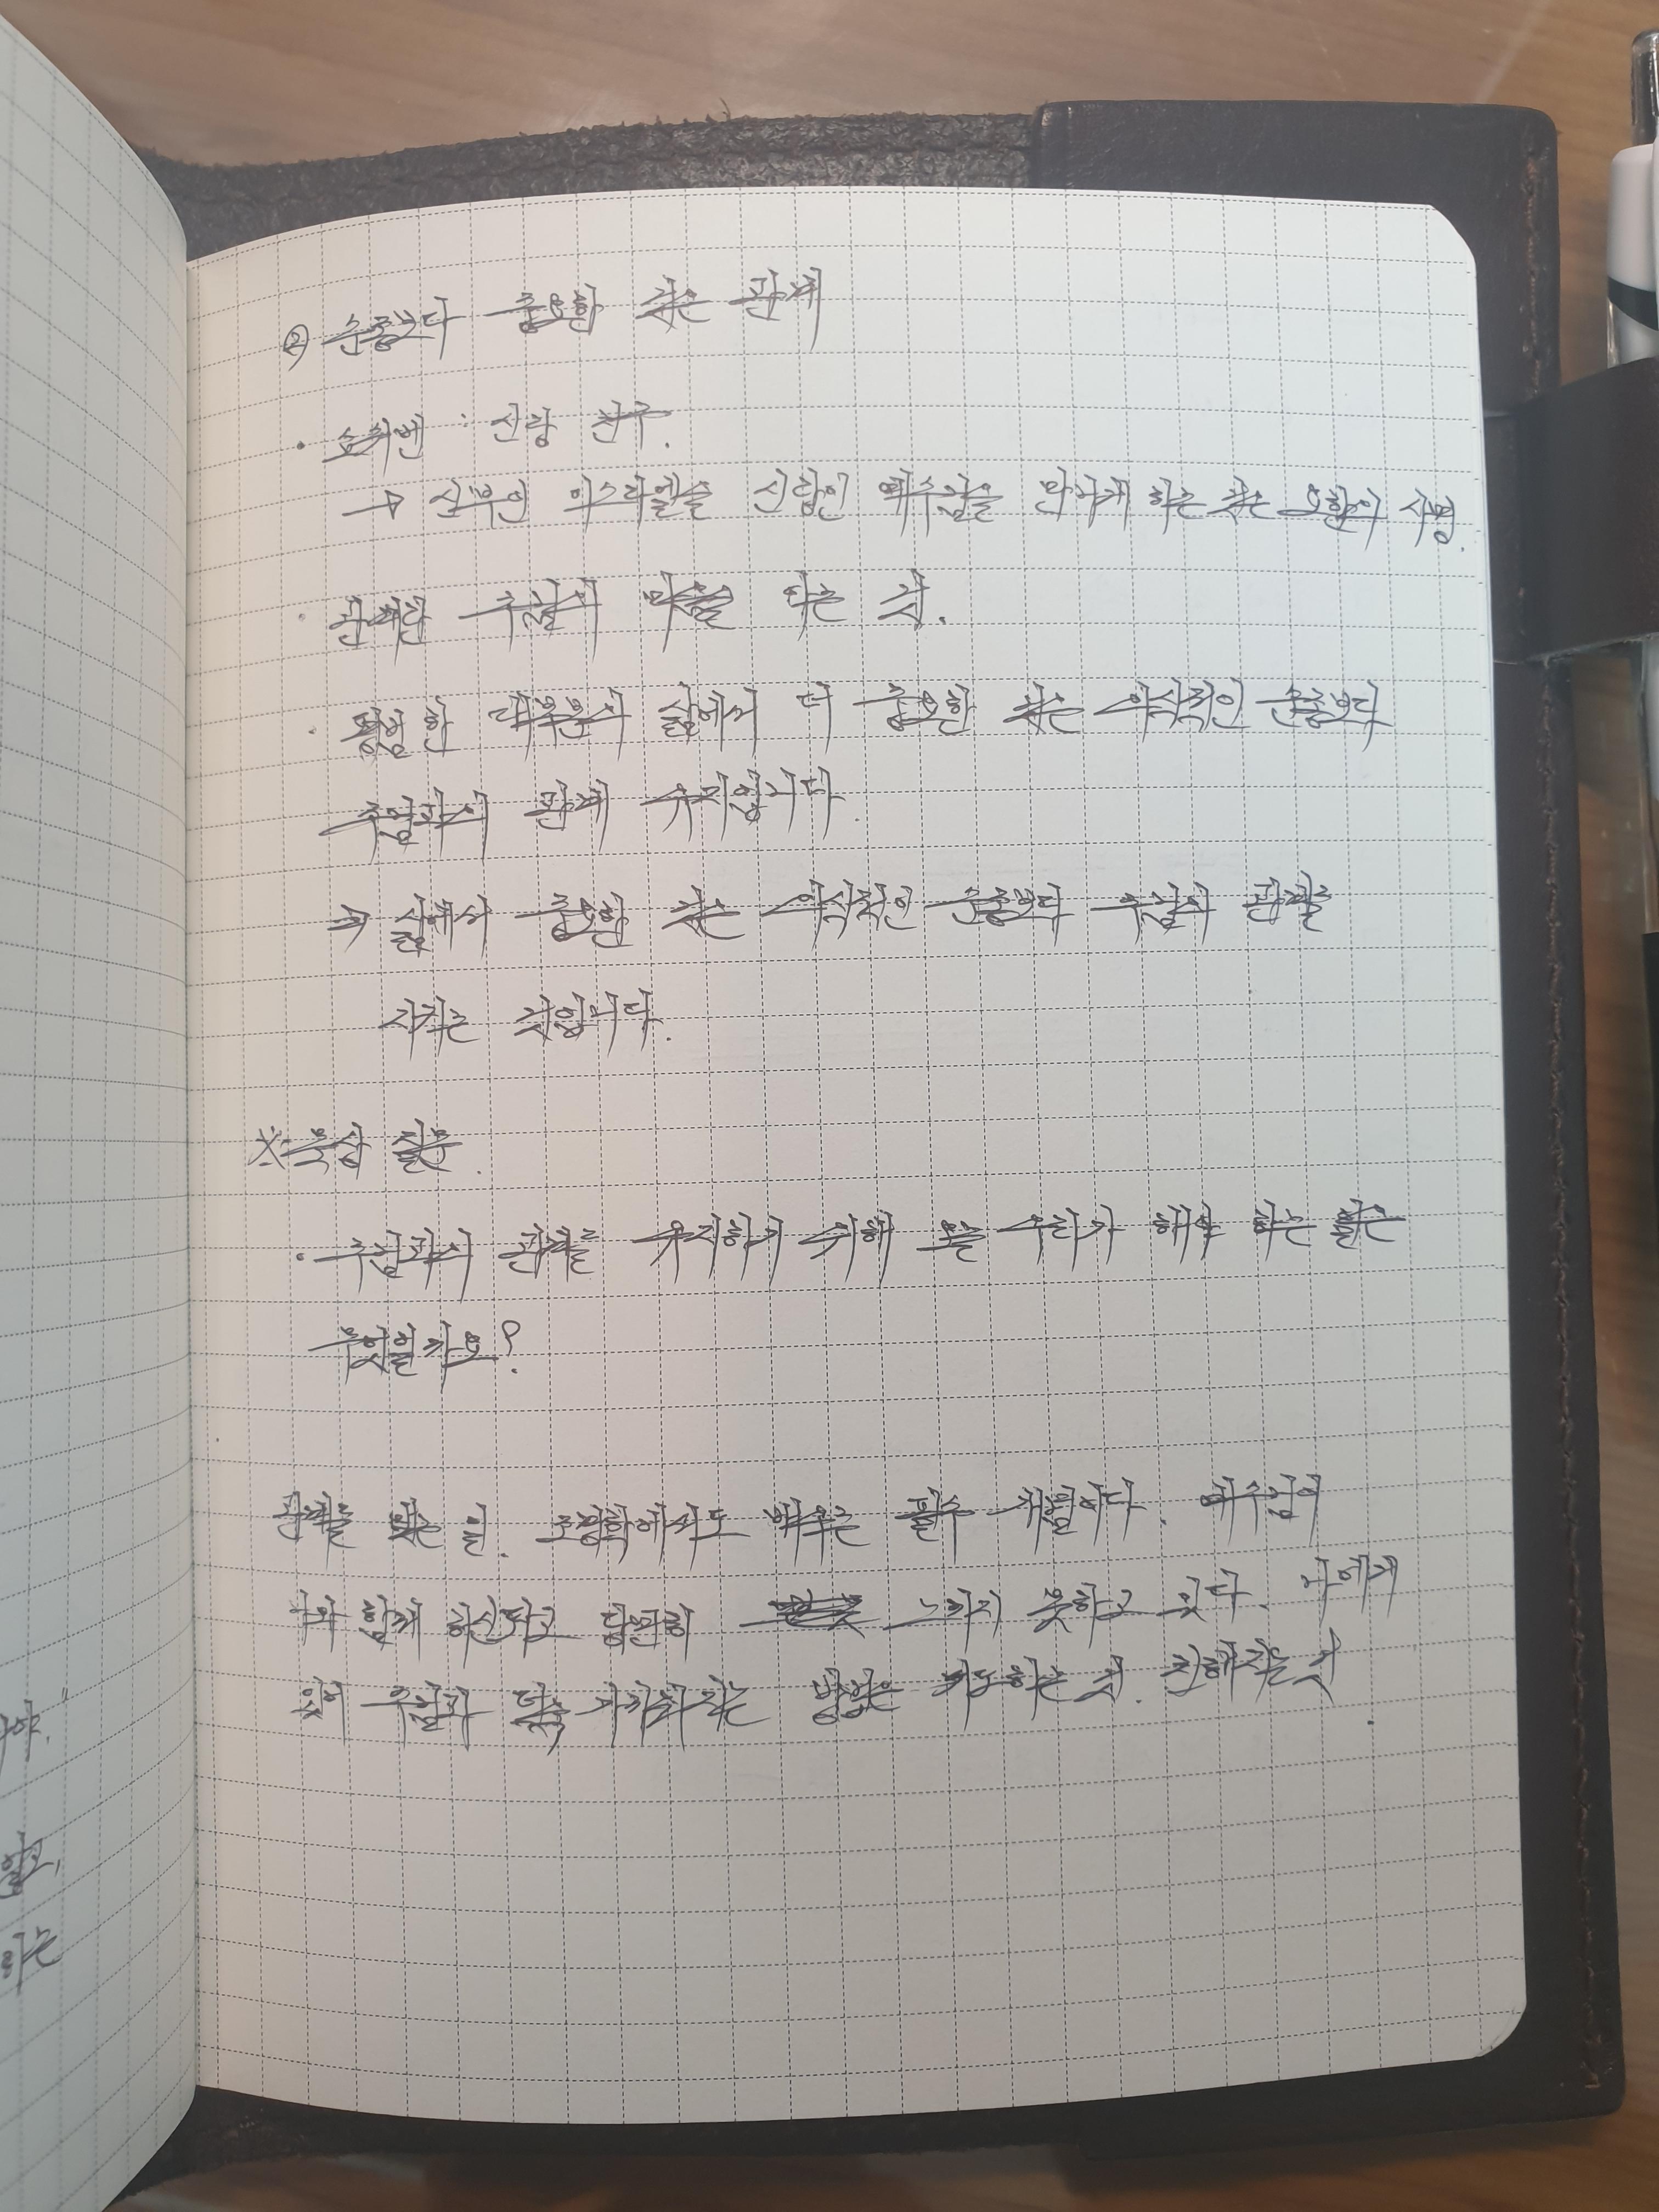 ② 순종보다 중요한 것은 관계
· 쇼쉬벤 : 신랑 친구.
→ 신부인 이스라엘을 신랑인 예수님을 만나게 하는 것은 요한의 사명.
· 관계란 주님의 마음을 아는 것.
· 평범한 대부분의 삶에서 더 중요한 것은 의식적인 순종보다
주님과의 관계 유지입니다.
→ 삶에서 중요한 것은 의식적인 순종보다 주님의 관계를
지키는 것입니다.
※ 묵상 질문.
· 주님과의 관계를 유지하기 위해 오늘 우리가 해야 하는 일은
무엇일까요?
관계를 맺는 일. 조직학에서도 배우는 필수 개념이다. 예수님이
나와 함께 하신다고 당연히 느끼지 못하고 있다. 나에게
있어 주님과 더욱 가까워지는 방법은 기도하는 것. 친해지는 것